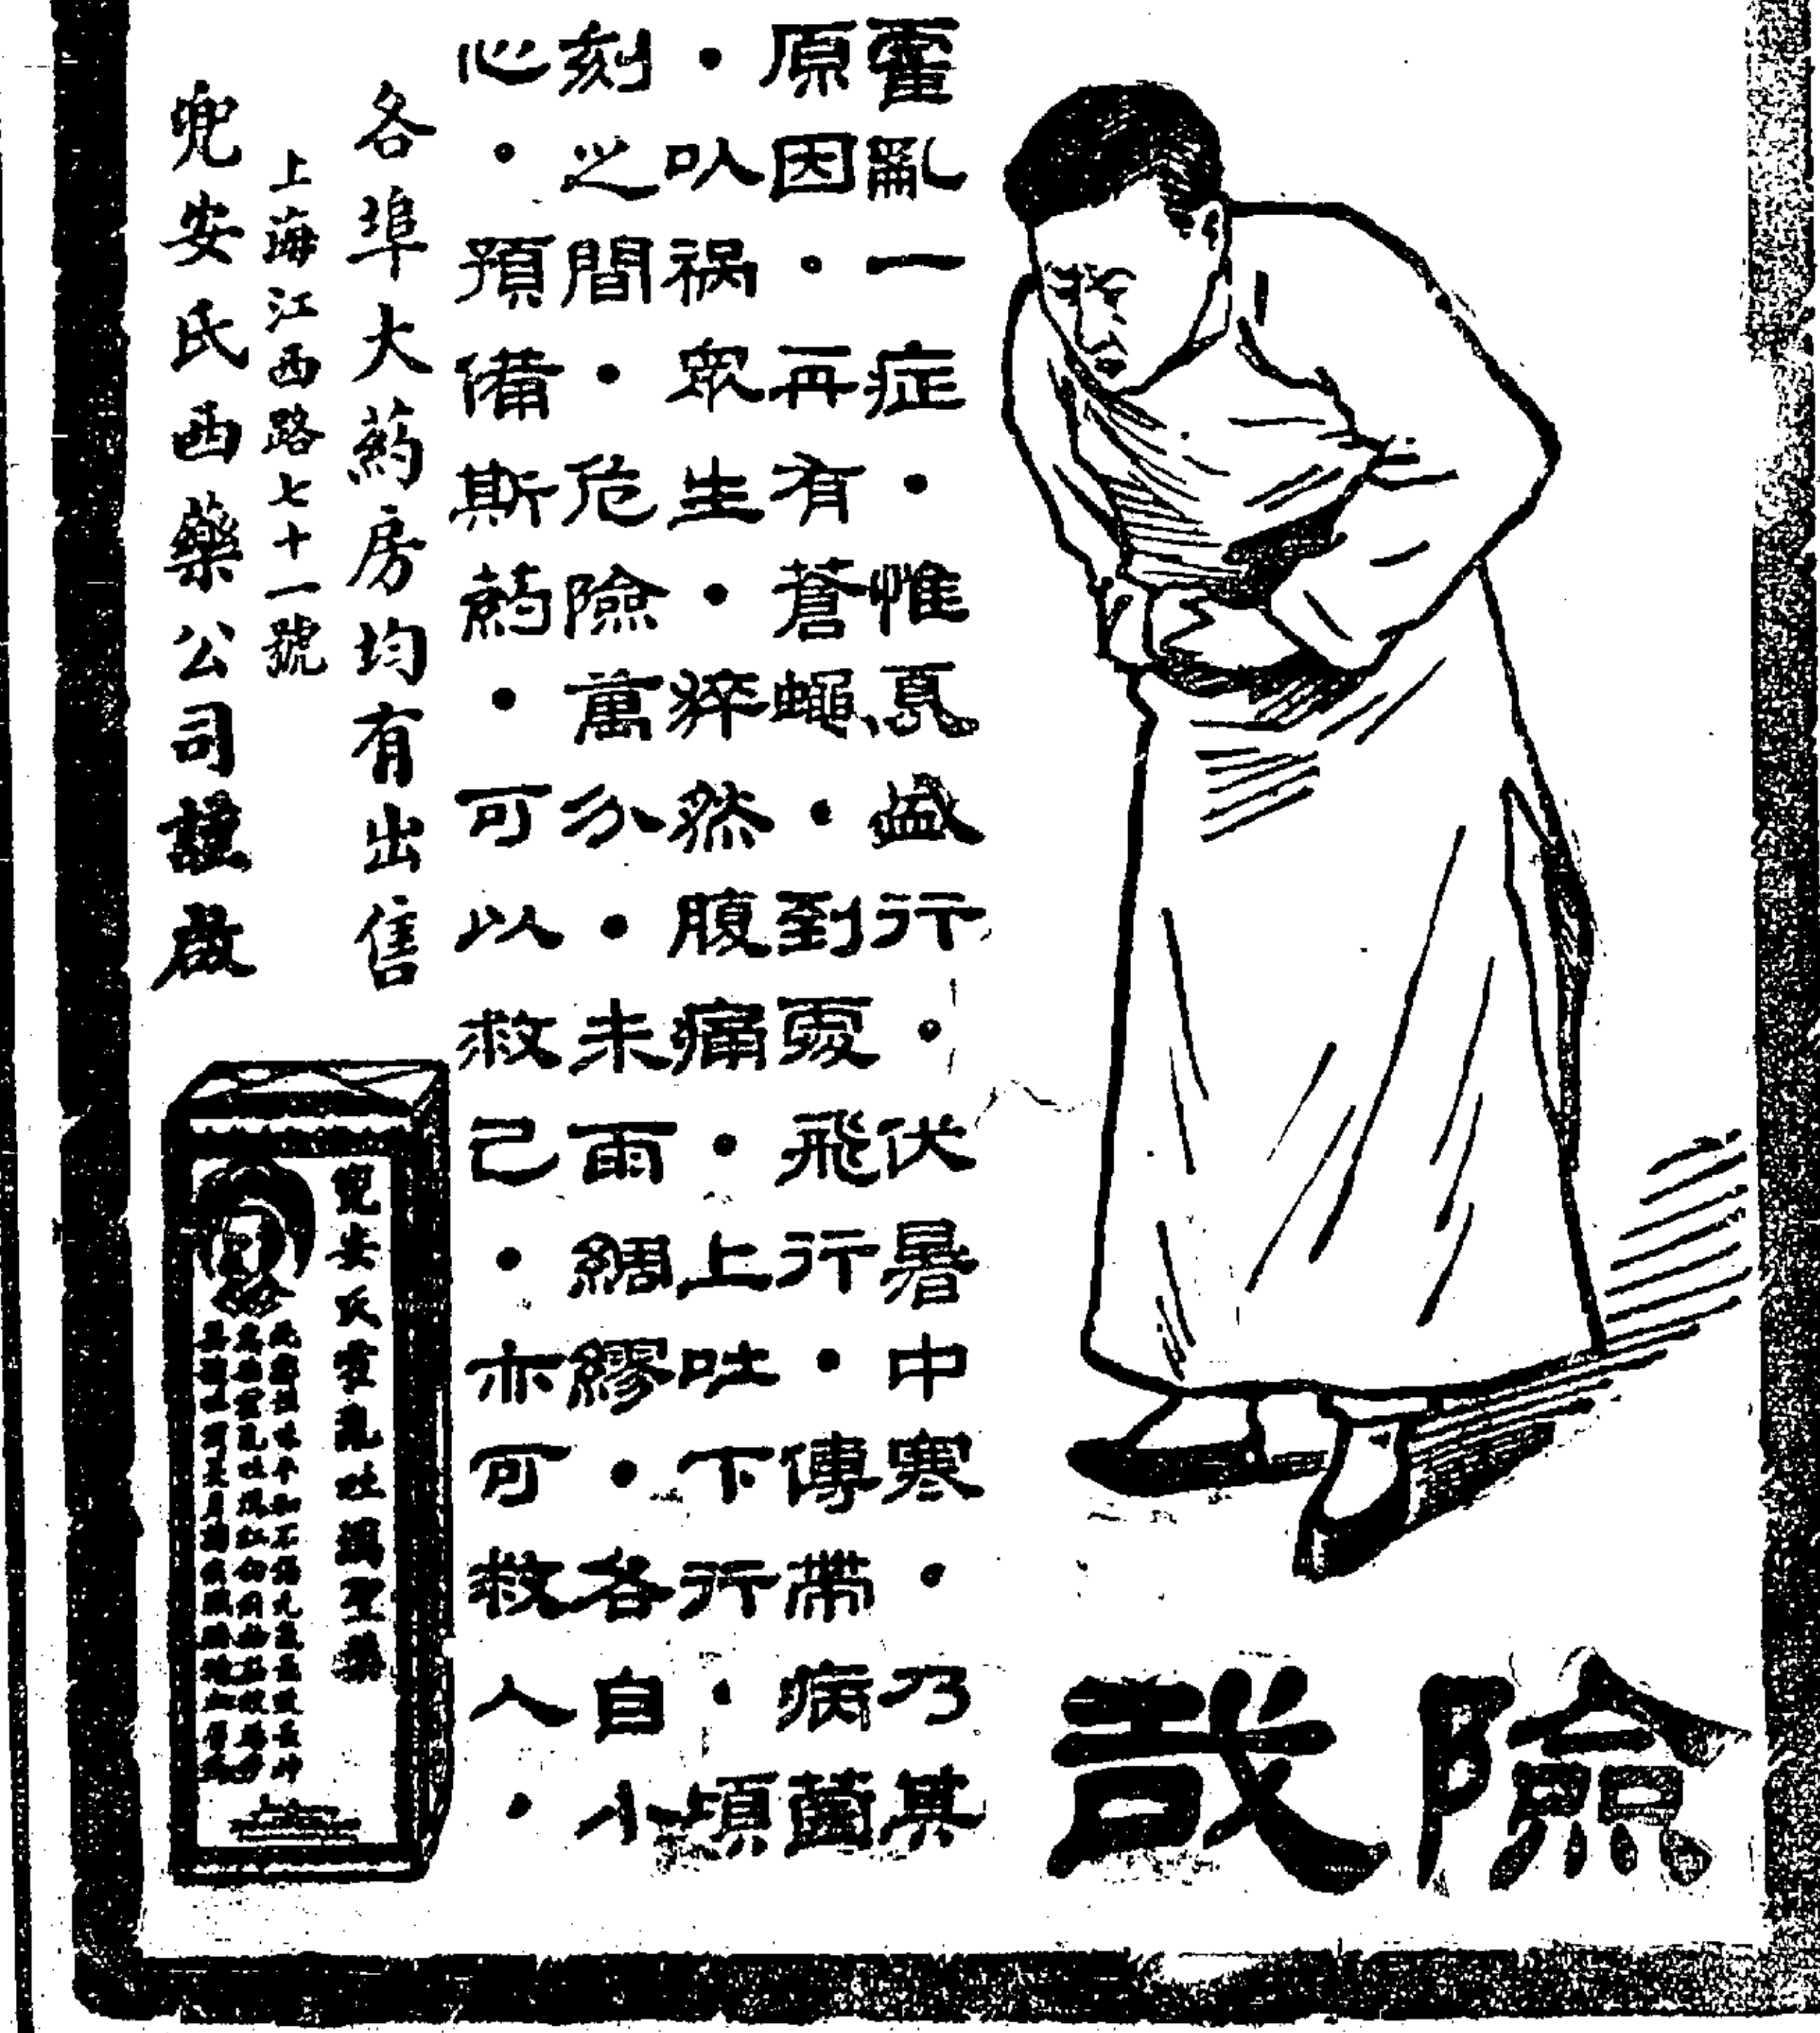 險哉
霍亂一症・惟夏盛行。伏暑中寒・乃其
原因・再有蒼蠅・到處飛行・傳帶病菌
・以禍眾生・猝然腹痛・上吐下行・頃
刻之間・危險萬分・未雨綢繆・各自小
心・預備斯葯・可以救己・亦可救人・
各埠大葯房均有出售
上海江西路七十一號
兜安氏西藥公司謹啟
兜安氏霍亂吐瀉聖藥